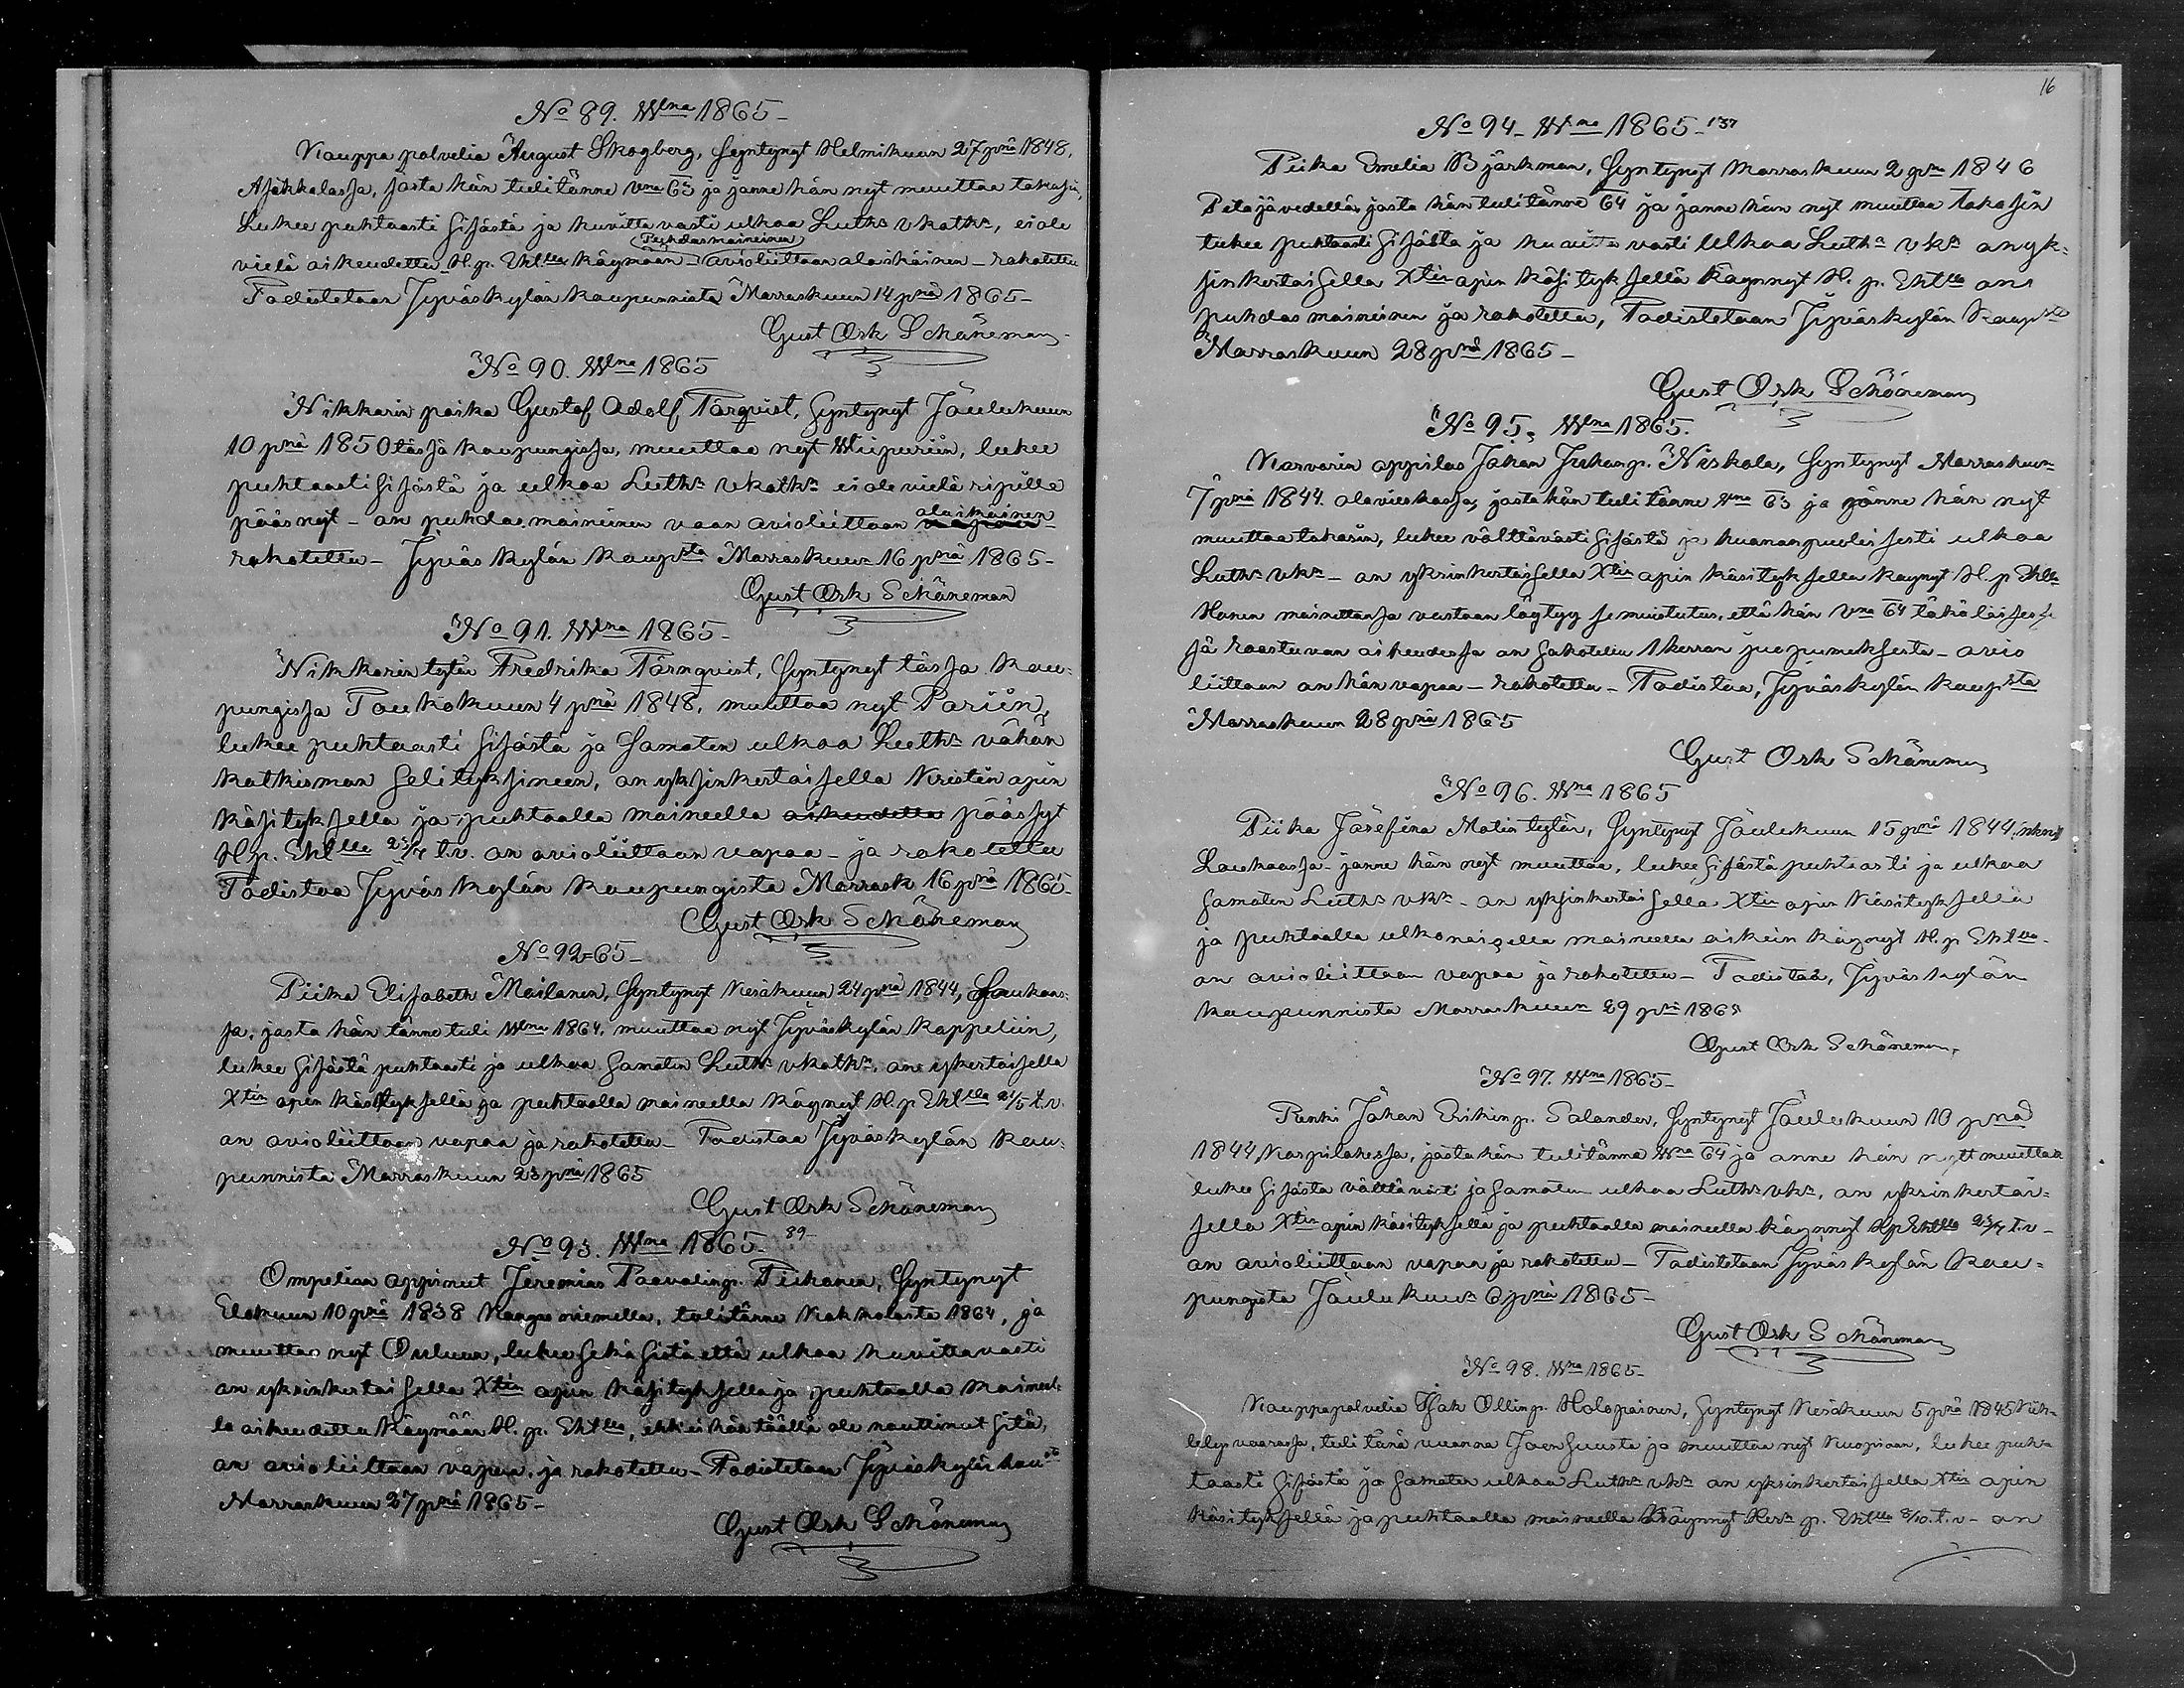 No 89. Wlna 1865-
Kauppa palvelia August Skogberg, syntynyt Helmikuun 27 pnä 1848,
Asikkalassa, josta hän tuli tänne vna 63 ja janne hän nyt muuttaa takasin,
Lukee puhtaasti sisästä ja kuvittavasti ulkaa Luths vkathn, ei ole
Puhdasmaineinen
vielä oikeudettu H. p. Ehtlla käymään - avioliittoon alaikäinen - rokotettu
Todistetaan Jyväskylän kaupunnista Marraskuun 14 pnä 1865-
Gust Osk Schöneman
No 90. Wlna 1865
Nikkarin poika Gustaf Adolf Törqvist, syntynyt Joulukuun
10 pnä 1850 tässä kaupungissa, muuttaa nyt Wiipuriin, lukee
puhtaasti sisästä ja ulkaa Luths vkathn ei ole vielä ripille
alaikäinen
päässyt - on puhdas maineinen vaan avioliittoon
rokotettu - Jyväskylän kaupsta Marraskuun 16 pnä 1865-
Gust Osk Schöneman
No 91. Wlna 1865-
Nikkarin tytär Fredrika Törnqvist, syntynyt tässä kau-
pungissa Toukokuun 4 pnä 1848, muuttaa nyt Poriin,
lukee puhtaasti sisästä ja samaten ulkaa Luths vähän
katkisman selityksineen, on yksinkertaisella Kristin opin
käsityksellä ja puhtaalla maineella oikeudettu päässyt
H. p. Ehtlle 23/4 t.v. on avioliittoon vapaa - ja rokotettu
Todistaa Jyväskylän kaupungista Marrask 16 pnä 1865-
Gust Osk Schöneman
No 92=65-
Piika Elisabeth Moilanen, syntynyt Kesäkuun 24 pnä 1844, Laukaas-
sa, josta hän tänne tuli Wlna 1864, muuttaa nyt Jyväskylän kappeliin,
lukee sisästä puhtaasti ja ulkaa samaten Luths vkathn. on ykertaisella
Xtin opin käsityksellä ja puhtaalla maineella käynyt H. p Ehtlla 21/5 t.v.
on avioliittoon vapaa ja rokotettu - Todistaa Jyväskylän kau-
punnista Marraskuun 23 pnä 1865
Gust Osk Schöneman
No 93. Wlna 1865- 89-
Ompelian oppinut Jeremias Paavalinp. Piikanen, syntynyt
Elokuun 10 pnä 1838 Kangasniemella, tuli tänne Kakkolasta 1864, ja
muuttaa nyt Ouluun, lukee sekä sistä että ulkaa kuvittavasti
on yksinkertaisella Xtin opin käsityksella ja puhtaalla maineel-
la oikeudettu käymään H. p. Ehtlla, ehkei hän täällä ole nauttinut sitä,
on avioliittoon vapaa, ja rokotettu - Todistetaan Jyväskylän kausta
Marraskuun 27 pnä 1865-
Gust Osk Schöneman
16
No 94- Wna 1865- 137
Piika Emelia Björkman, syntynyt Marraskuun 2 pnä 1846
Petäjävedellä, josta hän tuli tänne 64 ja janne hän nyt muuttaa takasin
lukee puhtaasti sisästä ja kuvittavasti ulkaa Luthn vkn on yk-
sinkertaisella Xtin opin käsityksellä käynnyt H. p. Ehtlla on
puhdas maineinen ja rokotettu, Todistetaan Jyväskylän kaupsta
Marraskuun 28 pnä 1865-
Gust Osk Schöneman
No 95. Wlna 1865.
Karvarin oppilas Johan Juhanp. Niskala, syntynyt Marraskuun
7 pnä 1844. Alavieskassa, josta hän tuli tänne vna 63 ja jonne hän nyt
muuttaa takasin, lukee välttävästi sisästä ja huononpuoleisesti ulkaa
Luths vkn - on yksinkertaisella Xtin opin käsityksellä käynyt H. p Ehtlla
Hanen mainettansa vastaan löytyy se muistutus, että hän vna 64 täkäläises-
sä raastuvan oikeudessa on sakotettu 1 kerran juopumuksesta - avio
liittoon on hän vapaa - rokotettu - Todistaa, Jyväskylän kaupsta
Marraskuun 28 pnä 1865
Gust Osk Schöneman
No 96. Wna 1865
Piika Josefina Matintytär, syntynyt Joulukuun 15 pnä 1844,
Laukaassa - janne hän nyt muuttaa, lukee sisästä puhtaasti ja ulkaa
samaten Luths vkn - on yksinkertaisella Xtin opin käsityksellä
ja puhtaalla ulkonaisella maineella oikein käynyt H. p Ehtlla-
on avioliittoon vapaa ja rokotettu - Todistaa, Jyväskylän
kaupunnista Marraskuun 29 pnä 1865
Gust Osk Schöneman,
No 97. Wna 1865-
Renki Johan Erikinp. Salander, syntynyt Joulukuun 10 pnä
1844 Karpilahessa, josta hän tuli tänne Wna 64 ja anne hän nytt muuttaa
lukee sisästa välttävästi ja samaten ulkaa Luths vkn, on yksinkertai-
sella Xtin opin käsityksellä ja puhtaalla maineella käynnyt Hp Ehtlla 23/4 t.v-
on avioliittoon vapaa ja rokotettu - Todistetaan Jyväskylän kau-
pungista Joulukuun 6 pnä 1865-
Gust Osk Schöneman
No 98. Wna 1865-
Kauppapalvelia Isak Ollinp. Holopainen, syntynyt Kesäkuun 5 pnä 1845 Kiih-
telysvaarassa, tuli tänä vuonna Joensuusta ja muuttaa nyt Kuopioon, lukee puh-
taasti sisästä ja samaten ulkaa Luths vkn on yksinkertaisella Xtin opin
käsityksellä ja puhtaalla maineella käynnyt Hern p. Ehtlla 8/10. t. v- on